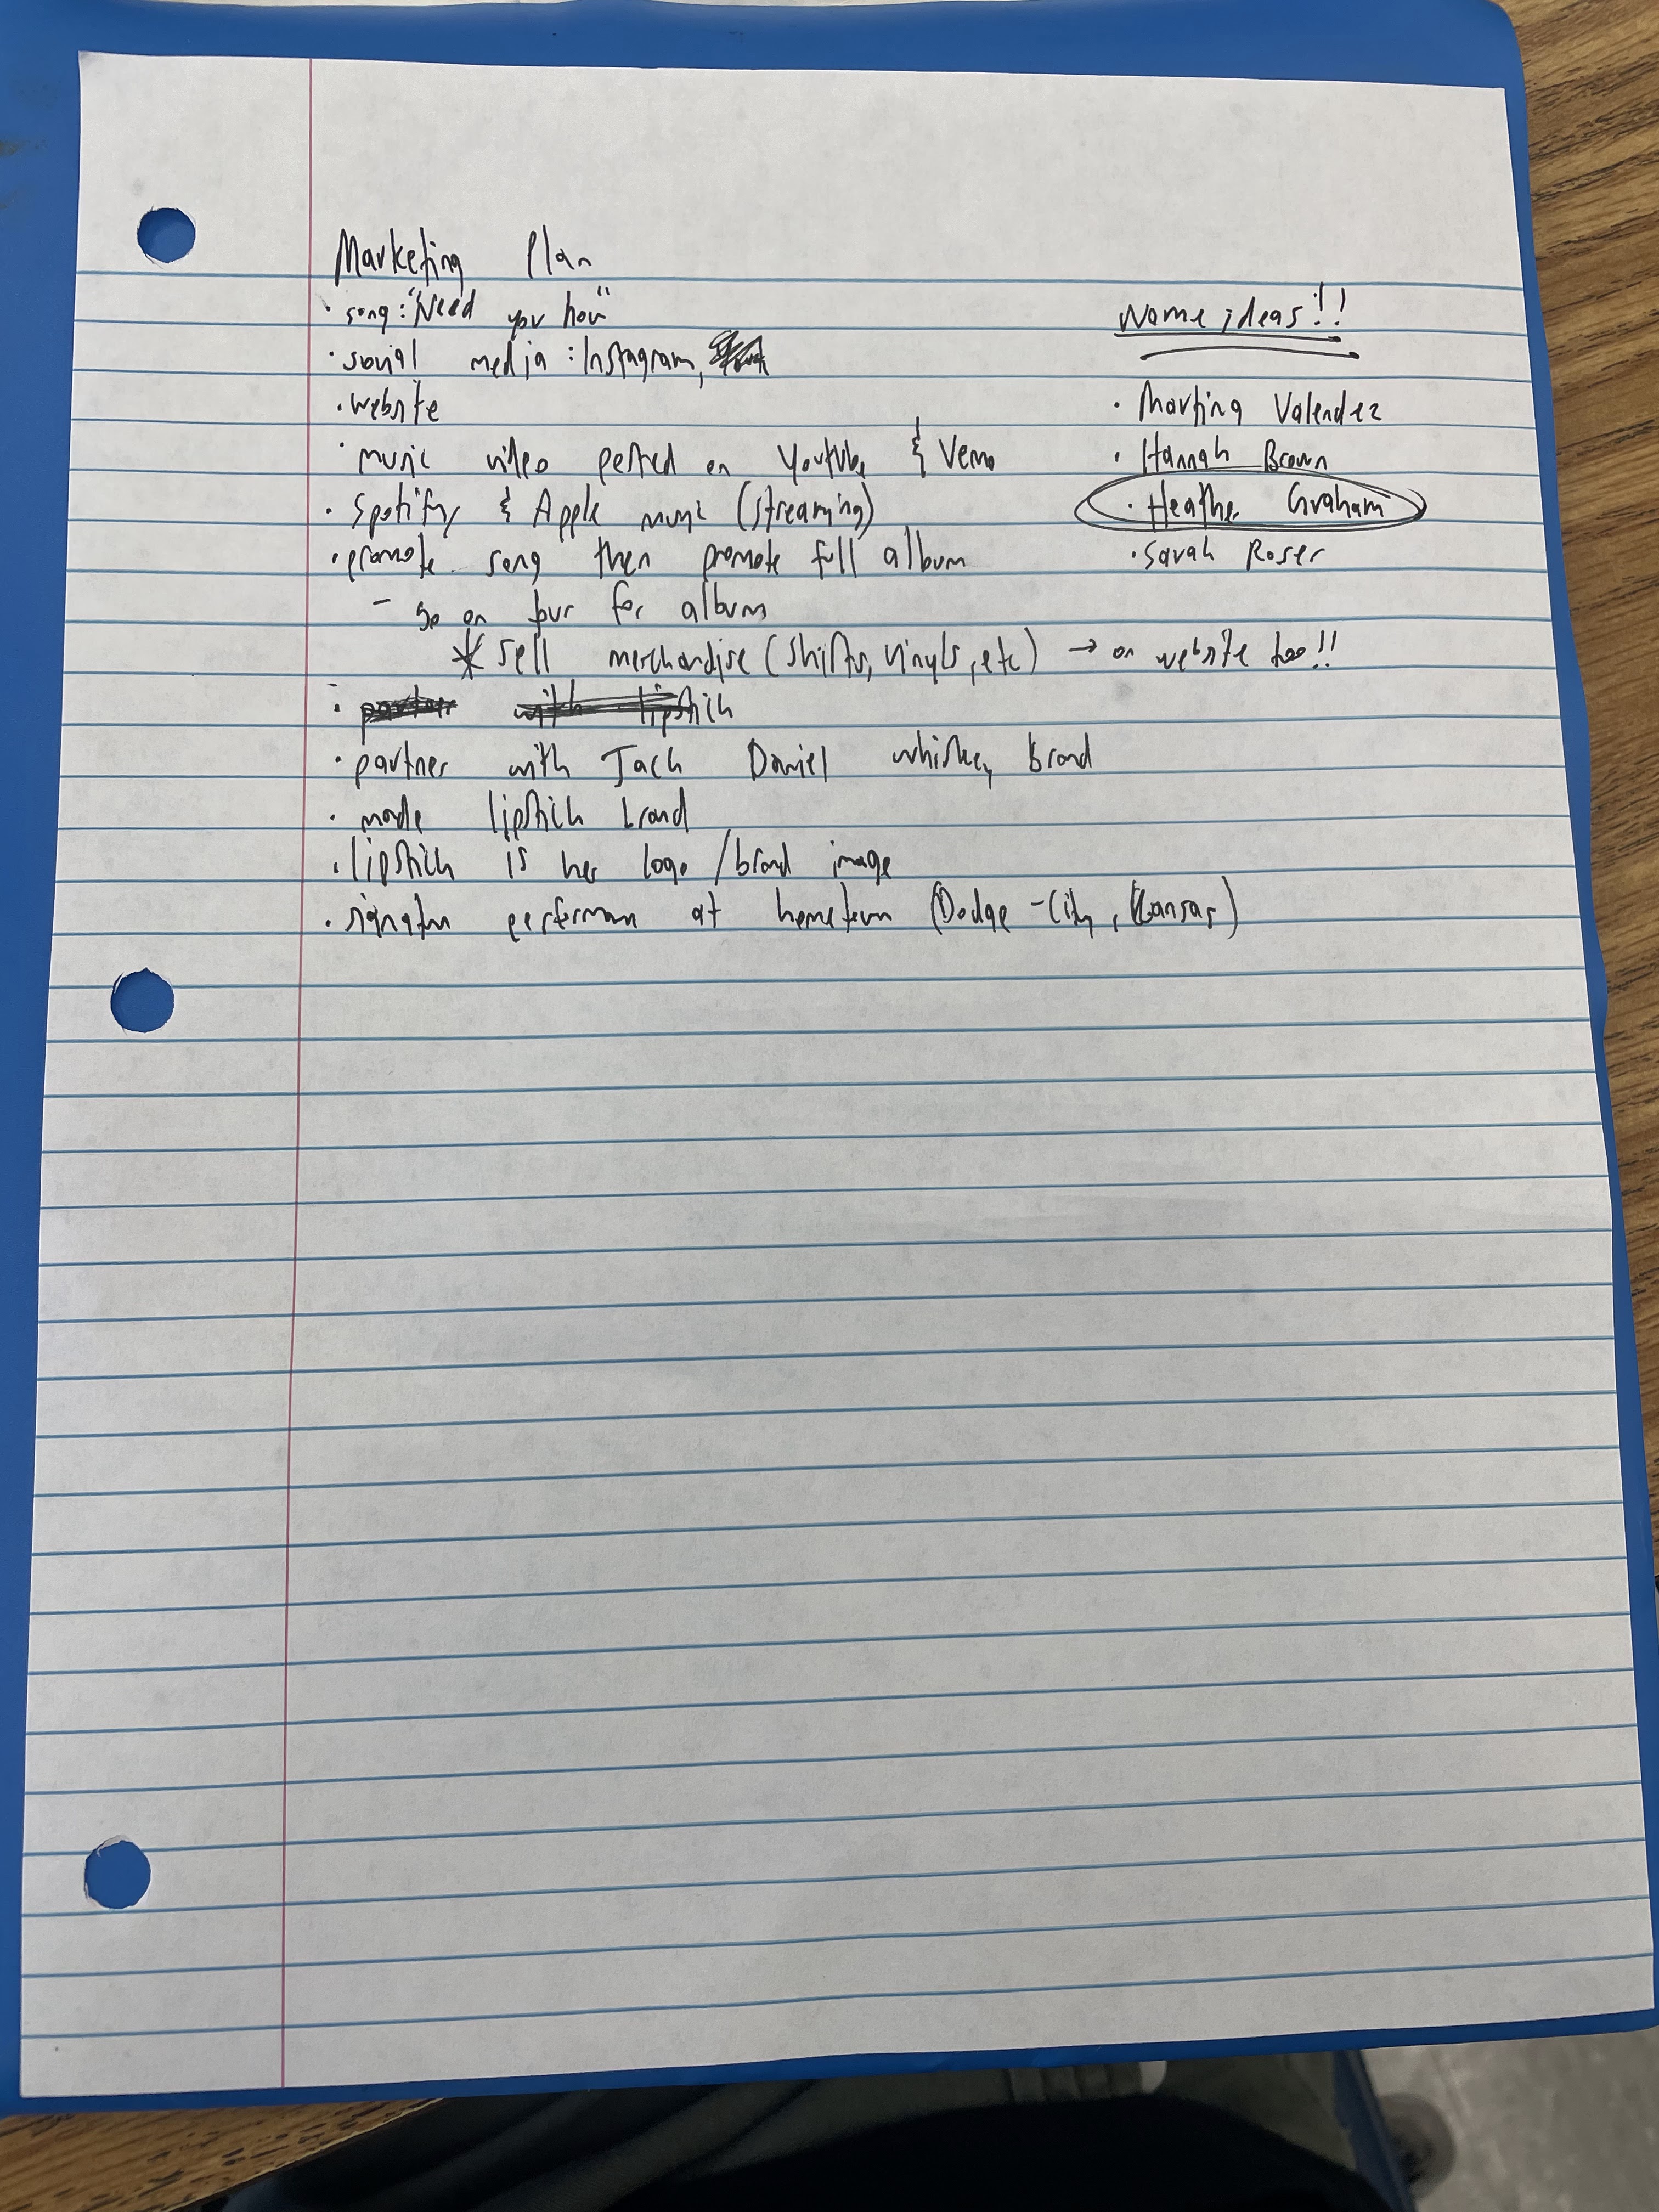 Marketing Plan
· song: "Need you now"
· social media: Instagram,
· website
· music video posted on Youtube & Vemo
· Spotify & Apple music (streaming)
· promote song then promote full album
- go on tour for album
* sell merchandise (shirts, vinyls, etc) → on website too!!
· partner with lipstick
· partner with Jack Daniel whiskey brand
· made lipstick brand
· lipstick is her logo/brand image
· signature performan at hometown (Dodge-City, Kansas)
Name ideas!!
· Martina Valendez
· Hannah Brown
· Heather Graham
· Sarah Roser